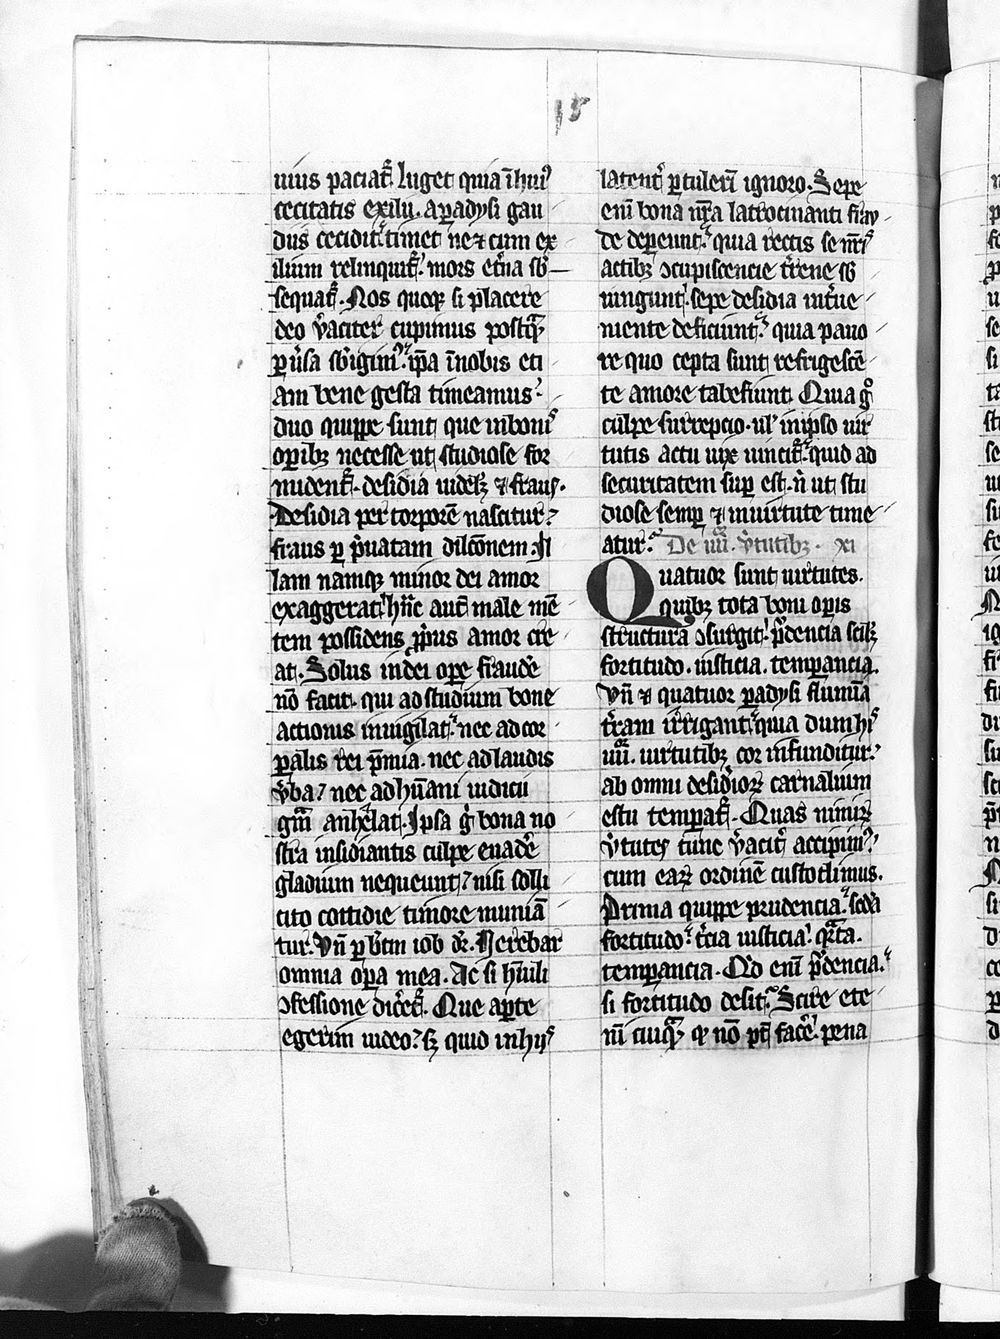 15
uius paciat᷑. luget quia ī hui⁹
cecitatis exiliū. a ꝑadysi gau
diis cecidit. timet ne ⁊ cum ex
ilium relinquit᷑. mors et̾na sb̾
sequat᷑. Nos quoqꝫ si placere
deo v̾aciter cupimus postqͣ
ꝑu̾sa sb̾igim⁹. ip̄a ī nobis eti
am bene gesta timeamus.
duo quippe sunt que in boni⁹
oꝑibꝫ necesse ut studiose for
mident᷑. desidia uidelꝫ ⁊ fraus.
Desidia per torporē nascitur.
fraus ꝑ pͥuatam dilc̄onem. Il
lam namqꝫ minor dei amor
exaggerat. hāc aut̄ male mē
tem possidens ꝓpͥus amor cre
at. Solus in dei oꝑe fraudē
nō facit. qui ad studium bone
actionis inuigilat. nec ad cor
ꝑalis rei p̄mia. nec ad laudis
v̾ba. nec ad hūani iudicii
gr̄am anhelat. Ipsa gͦ bona no
stra insidiantis culpe euadē
gladium nequeunt. nisi solli
cito cottidie timore muniā
tur. Vn̄ ꝑ b̄tm iob dr̄. Uerebar
omnia oꝑa mea. Ac si hūili
ↄfessione dicet᷑. Que aꝑte
egerim uideo. sꝫ quid in hiis
latent᷑ ꝑtulerī ignoro. Sepe
enī bona nr̄a latrocinanti frau
de deꝑeunt. quia rectis se nr̄is
actibꝫ ↄcupiscencie t̾rene sb̾
iungunt. sepe desidia int̾ue
niente deficiunt. quia pauo
re quo cepta sunt refrigescē
te amore tabefiunt. Quia gͦ
culpe surrepcio. ul' in ipso uir
tutis actu uix uincit᷑. quid ad
securitatem suꝑ est. n̄ ut stu
diose semꝑ ⁊ in uirtute time
atur. De iiii. v̾tutibꝫ. xi
Quatuor sunt uirtutes.
quibꝫ tota boni oꝑis
structura ↄsurgit. p̄dencia scilꝫ
fortitudo. iusticia. temꝑancia.
Vn̄ ⁊ quatuor ꝑadysi flumīa
t̾ram irrigant. quia dum hi⁹
iiii. uirtutibꝫ cor infunditur.
ab omni desidioꝝ carnalium
estu temꝑat᷑. Quas nimiꝝ
v̾tutes tunc v̾acit̾ accipim⁹.
cum eaꝝ ordinē custodimus.
Prima quippe prudencia. sc̄da
fortitudo. t̾cia iusticia. qͣrta.
temꝑancia. Qͥd enī p̄dencia.
si fortitudo desit. Scire ete
nī cuiqͣ qꝫ nō pt̄ facē. pena